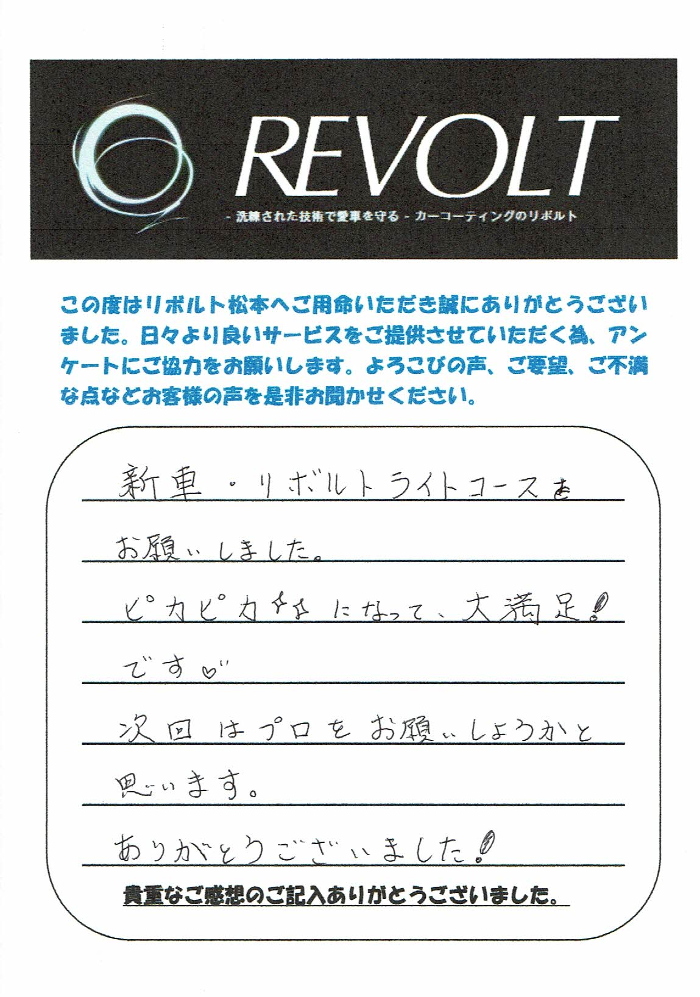 REVOLT
- 洗練された技術で愛車を守る - カーコーティングのリボルト
この度はリボルト松本へご用命いただき誠にありがとうござい
ました。日々より良いサービスをご提供させていただく為、アン
ケートにご協力をお願いします。よろこびの声、ご要望、ご不満
な点などお客様の声を是非お聞かせください。
新車・リボルトライトコースを
お願いしました。
ピカピカ☆☆になって、大満足!
です♡
次回はプロをお願いしようかと
思います。
ありがとうございました!
貴重なご感想のご記入ありがとうございました。